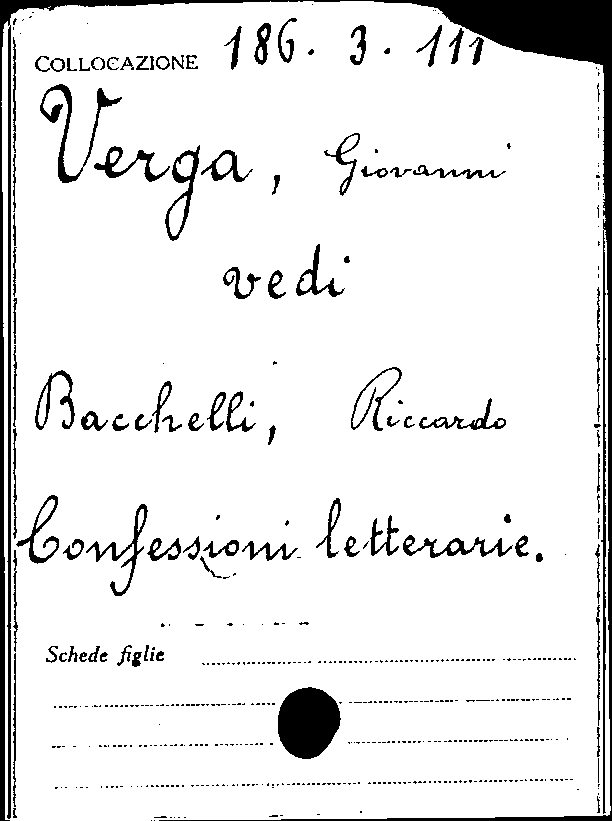 COLLOCAZIONE 186. 3. 111
Verga, Giovanni
vedi
Bacchelli, Riccardo
Confessioni letterarie.
Schede figlie